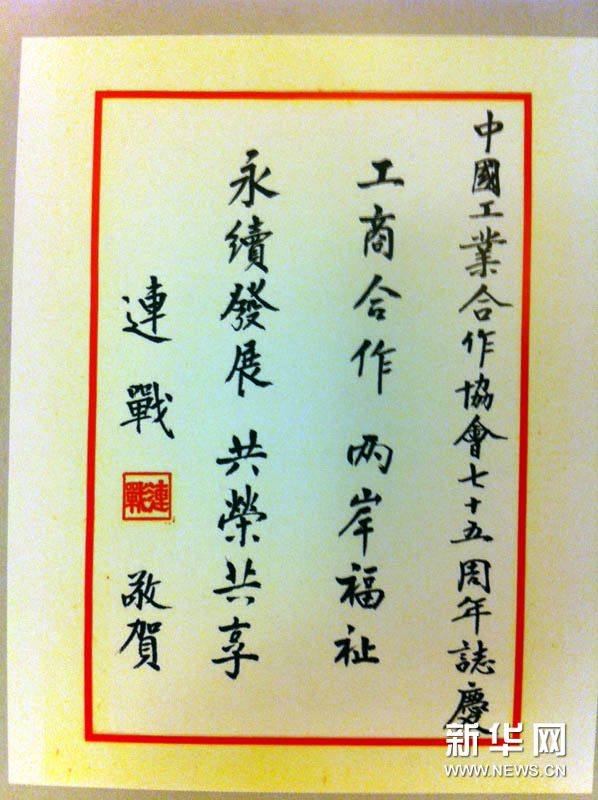 中國工業合作協會七十五周年誌慶
工商合作 兩岸福祉
永續發展 共榮共享
連戰
連戰
敬賀
新华网
WWW.NEWS.CN